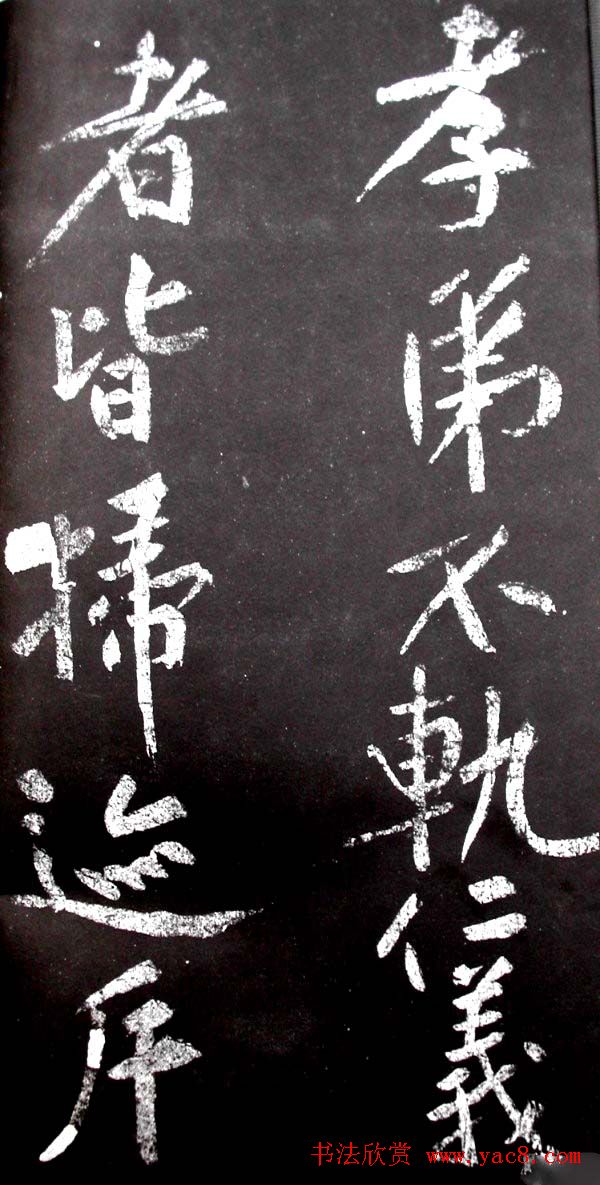 孝弟不軌仁義
者皆掃迹斥
书法欣赏 www.yac8.com